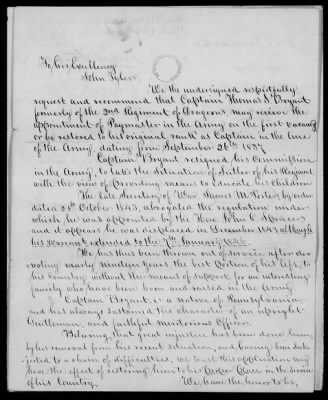 To his Excellency
John Tyler.
We the undersigned respectfully
request and recommend that Captain Thomas S. Bryant
formerly of the 2nd Regiment of Dragoons may receive the
appointment of Paymaster in the Army on the first vacancy
or be restored to his original rank as Captain in the line
of the Army, dating from September 20th 1837
Captain Bryant resigned his Commission
in the Army, to take the Situation of Sutler of his Regiment
with the view of providing means to educate his children
The late Secretary of War James M. Porter by order
dated 25th October 1843, abrogated the regulation under
which he was appointed by the Hon. John C. Spencer
and it appears he was displaced in December 1843 although
his warrant extended to the 7th January 1846.
He has thus been thrown out of service after de-
voting nearly nineteen years, the best portion of his life, to
his Country without the means of support for an interesting
family who have been born and raised in the Army
Captain Bryant is a native of Pennsylvania
and has always sustained the character of an upright
Gentleman, and faithful meritorious Officer.
Believing that great injustice has been done him,
by his removal from his recent situation, and having been sub-
jected to a chain of difficulties, we trust this application may
have the effect of restoring him to his place in the service
of his Country.
We have the honor to be,